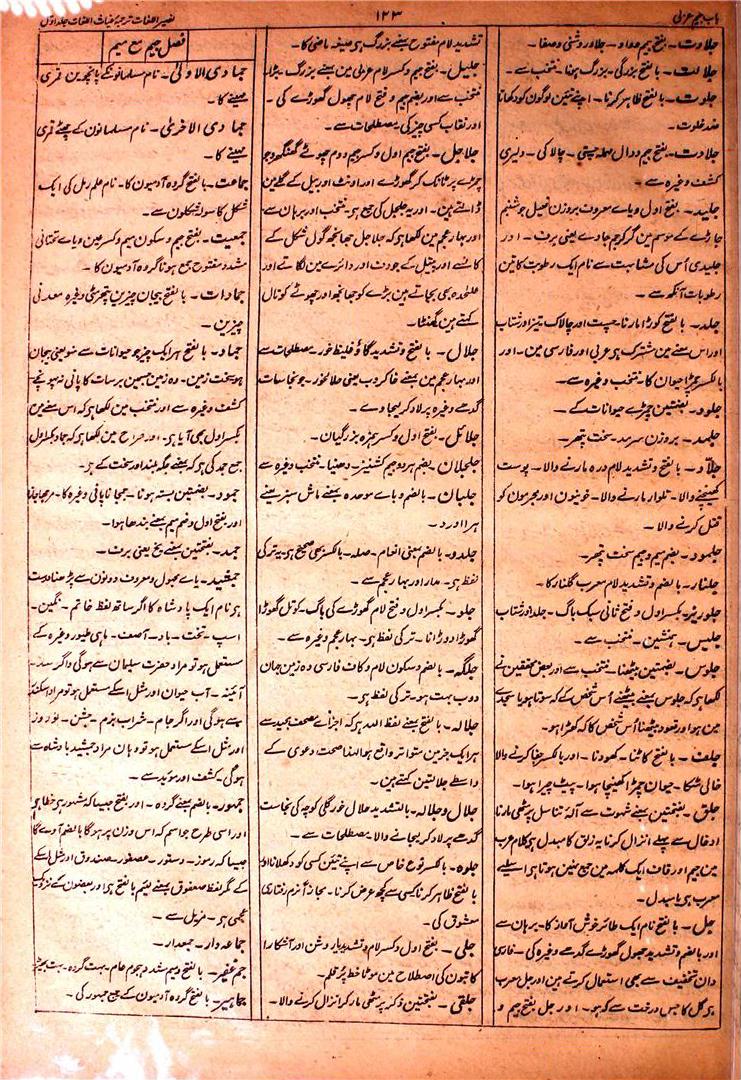 باب جیم عربی
۱۲۳
نصیر اللغات ترجمۂ غیاث اللغات جلد اول
جلاوت۔ بفتح جیم و واو۔ جلا و روشنی و صفا۔
جلالت۔ بالفتح بزرگی۔ بزرگ ہونا۔ منتخب سے۔
جلوت۔ بالفتح ظاہر کرنا۔ اپنے تئین لوگون کو دکھانا
ضد خلوت۔
جلادت۔ بفتح جیم و دال مہملہ چستی۔ چالاکی۔ دلیری
کشف وغیرہ سے۔
جلید۔ بفتح اول و یاے معروف بروزن فعیل جو شبنم
جاڑے کے موسم مین گر کر جم جاوے یعنی برف۔ اور
جلیدی اُس کی مشابہت سے نام ایک رطوبت کا تین
رطوبات آنکھ سے۔
جلد۔ بالفتح کوڑا مارنا۔ چست اور چالاک تیز اور شتاب
اور اس معنے مین مشترک ہی عربی اور فارسی مین۔ اور
بالکسر چمڑا حیوان کا۔ منتخب وغیرہ سے۔
جلود۔ بضمتین چمڑے حیوانات کے۔
جلمد۔ بروزن سرمد۔ سخت پتھر۔
جلّاد۔ بالفتح و تشدید لام درہ مارنے والا۔ پوست
کھینچنے والا۔ تلوار مارنے والا۔ خونیون اور مجرمون کو
قتل کرنے والا۔
جلمود۔ بضم جیم و میم سخت پتھر۔
جلنار۔ بالضم و تشدید لام معرب گلنار کا۔
جلوریز۔ بکسر اول و فتح ثانی سبک باگ۔ جلد اور شتاب
جلیس۔ ہمنشین۔ منتخب سے۔
جلوس۔ بضمتین بیٹھنا۔ منتخب سے اور بعض محققین نے
لکھا ہی کہ جلوس بمعنے بیٹھنے اُس شخص کے کہ سوتا ہو یا سجدے
مین ہو اور قعود بیٹھنا اُس شخص کا کہ کھڑا ہو۔
جلف۔ بالفتح کاٹنا۔ کھودنا۔ اور بالکسر جفا کرنے والا
خالی مٹکا۔ حیوان چمڑا کھینچا ہوا۔ پیٹ چیرا ہوا۔
جلق۔ بفتحتین بمعنے شہوت سے آلہ تناسل پر مٹھی مارنا
ادخال سے پہلے انزال کرنا یہ زلق کا مبدل ہی کلام عرب
مین جیم اور قاف ایک کلمہ مین جمع نہین ہوتا ہی اسلیے
معرب ہی یا مبدل۔
جل۔ بالفتح نام ایک طائر خوش آواز کا۔ برہان سے
اور بالضم و تشدید جھول گھوڑے گدھے وغیرہ کی۔ فارسی
دان تخفیف سے بھی استعمال کرتے ہین اور جل معرب
ہی گل کا جس درخت سے کہ ہو۔ اور جل بفتح جیم و
تشدید لام مفتوح بمعنے بزرگ ہی صیغہ ماضی کا۔
جلیل۔ بفتح جیم و کسر لام عربی مین بمعنے بزرگ۔ بڑا۔
منتخب سے اور بضم جیم و فتح لام جھول گھوڑے کی۔
اور نقاب کسی چیز کی۔ مصطلحات سے۔
جلاجل۔ بفتح جیم اول و کسر جیم دوم چھوٹے گھنگھرو جو
چمڑے پر ٹانک کر گھوڑے اور اونٹ اور بیل کے گلے مین
ڈالتے ہین۔ اور یہ جلجل کی جمع ہی۔ منتخب اور برہان سے
اور بہار عجم مین لکھا ہی کہ جلاجل جھانجھ گول شکل کے
کانسے اور پیتل کے جو دف اور دائرے مین لگاتے اور
علٰحدہ بھی بجاتے ہین بڑے کو جھانجھ اور چھوٹے کو تال
کہتے ہین گھنٹا۔
جلال۔ بالفتح و تشدید گاؤ غلیظ خور۔ مصطلحات سے
اور بہار عجم مین بمعنے خاکروب یعنی حلالخور۔ جو نجاسات
گدھے وغیرہ پر لاد کر لیجاوے۔
جلائل۔ بفتح اول و کسر ہمزہ بزرگیان۔
جلجلان۔ بضم ہر دو جیم کشنیز۔ دھنیا۔ منتخب وغیرہ سے
جلبان۔ بالضم و باے موحدہ بمعنے ماش سبز یعنے
ہرا اورد۔
جلدو۔ بالضم بمعنی انعام۔ صلہ۔ بالکسر بھی صحیح ہی۔ یہ ترکی
لفظ ہی۔ مدار اور بہار عجم سے۔
جلو۔ بکسر اول و فتح لام گھوڑے کی باگ۔ کوتل گھوڑا
گھوڑا دوڑانا۔ ترکی لفظ ہی۔ بہار عجم وغیرہ سے۔
جلگہ۔ بالضم و سکون لام و کاف فارسی وہ زمین جہان
دوب بہت ہو۔ ترکی لفظ ہی۔
جلالہ۔ بالفتح بمعنے لفظ اللہ ہی کہ اجزاے مصحف مجید سے
ہر ایک جز مین متواتر واقع ہو الہذا صحت دعوی کے
واسطے جلالتین کہتے ہین۔
جلال و جلالہ۔ بالتشدید حلال خور گلی کوچہ کی نجاست
گدھے پر لاد کر لیجانے والا۔ مصطلحات سے۔
جلوہ۔ بالکسر نوع خاص سے اپنے تئین کسی کو دکھلانا اور
بالفتح ظاہر کرنا کسی سے کچھ عرض کرنا۔ مجازاً خرام رفتاری
معشوق کی۔
جلی۔ بفتح اول و کسر لام و تشدید یا روشن اور آشکارا
کاتبون کی اصطلاح مین موٹا خط پُر قلم۔
جلقی۔ بفتحتین ذکر پر مٹھی مار کر انزال کرنے والا۔
فصل جیم مع میم
جمادی الاولیٰ۔ نام مسلمانونکے پانچوین قمری
مہینے کا۔
جمادی الاخرٰی۔ نام مسلمانون کے چھٹے قمری
مہینے کا۔
جماعت۔ بالفتح گروہ آدمیون کا۔ نام علم رمل کی ایک
شکل کا سولہ شکلون سے۔
جمعیت۔ بفتح جیم و سکون میم و کسر عین و یاے تحتانی
مشدد مفتوح جمع ہونا گروہ آدمیون کا۔
جمادات۔ بالفتح بیجان چیزین پتھر مٹی وغیرہ معدنی
چیزین۔
جماد۔ بالفتح ہر ایک چیز جو حیوانات سے نہو یعنی بیجان
ہو سخت زمین۔ وہ زمین جسمین برسات کا پانی نہ پہونچے
کشف وغیرہ سے اور منتخب مین لکھا ہی کہ اس معنے مین
بکسر اول بھی آیا ہی۔ اور صراح مین لکھا ہی کہ جماد بکسر اول
جمع جمد کی ہی کہ بمعنے جگہ بلند اور سخت کے ہی۔
جمود۔ بضمتین بستہ ہونا۔ جمجانا پانی وغیرہ کا۔ مرجھا جانا
اور بفتح اول و ضم میم بمعنے بندھا ہوا۔
جمد۔ بفتحتین بمعنے یخ یعنی برف۔
جمشید۔ یاے مجہول و معروف دونون سے پڑھنا درست
ہی نام ایک پادشاہ کا اگر ساتھ لفظ خاتم۔ نگین۔
اسپ۔ تخت۔ باد۔ آصف۔ ماہی طیور وغیرہ کے
مستعمل ہو تو مراد حضرت سلیمان سے ہوگی و اگر سد۔
آئینہ۔ آب حیوان اور مثل اسکے مستعمل ہو تو مراد سکندر
سے ہوگی اور اگر جام۔ شراب بزم۔ جشن۔ نوروز
اور مثل اسکے مستعمل ہو تو وہان مراد جمشید بادشاہ سے
ہوگی۔ کشف اور مؤید سے۔
جمہور۔ بالضم بمعنے گروہ۔ اور بفتح جیسا کہ مشہور ہی خطا ہی
اور اسی طرح جو اسم کہ اس وزن پر ہوگا بالضم آوے گا
جیسا کہ رموز۔ دستور۔ عصفور۔ صندوق اور مثل اسکے
کے مگر لفظ صعفوق بمعنے لئیم بالفتح ہی اور بعضون کے نزدیک
عجمی ہی۔ مزیل سے۔
جماعہ دار۔ جمعدار۔
جم غفیر۔ بالفتح و میم مشدد ہجوم عام۔ بہت گروہ۔ بہت بھیڑ
جماہیر۔ بالفتح گروہ آدمیون کے جمع جمہور کی۔